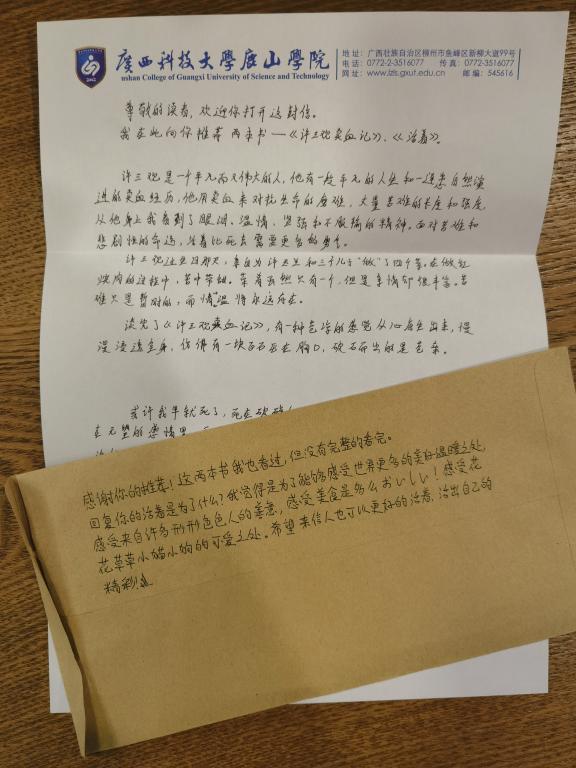 廣西科技大學鹿山學院
ushan College of Guangxi University of Science and Technology
地址：广西壮族自治区柳州市鱼峰区新柳大道99号
电话：0772-2-3516077 传真：0772-3516077
网址：www.lzls.gxut.edu.cn 邮编：545616
尊敬的读者，欢迎你打开这封信。
我在此向你推荐两本书——《许三观卖血记》、《活着》。
许三观是一个平凡而又伟大的人，他有一段平凡的人生和一连串自然演
进的卖血经历，他用卖血来对抗生命的磨难，丈量苦难的长度和强度
从他身上我看到了眼泪、温情、坚强和不服输的精神。面对苦难和
悲剧性的命运，活着比死去需要更多的勇气。
许三观过生日那天，亲自为许玉兰和三个儿子"做"了四个菜。在做红
烧肉的过程中，苦中带甜。菜肴虽然只有一个，但是亲情却很丰富。苦
难只是暂时的，而情温将永远存在。
读完了《许三观卖血记》，有一种苍凉的感觉从心底生出来，慢
慢浸透全身，仿佛有一块石头压在胸口，破石而出的是苍桑。
或许我早就死了，死在
在无望的
感谢你的推荐！这两本书我也看过，但没有完整的看完。
回复你的活着是为了什么？我觉得是为了能够多感受世界更多的美好温暖之处，
感受来自许多形形色色人的善意，感受美食是多么おいしい！感受花
花草草小猫小狗的可爱之处。希望来信人也可以更好的活着，活出自己的
精彩！